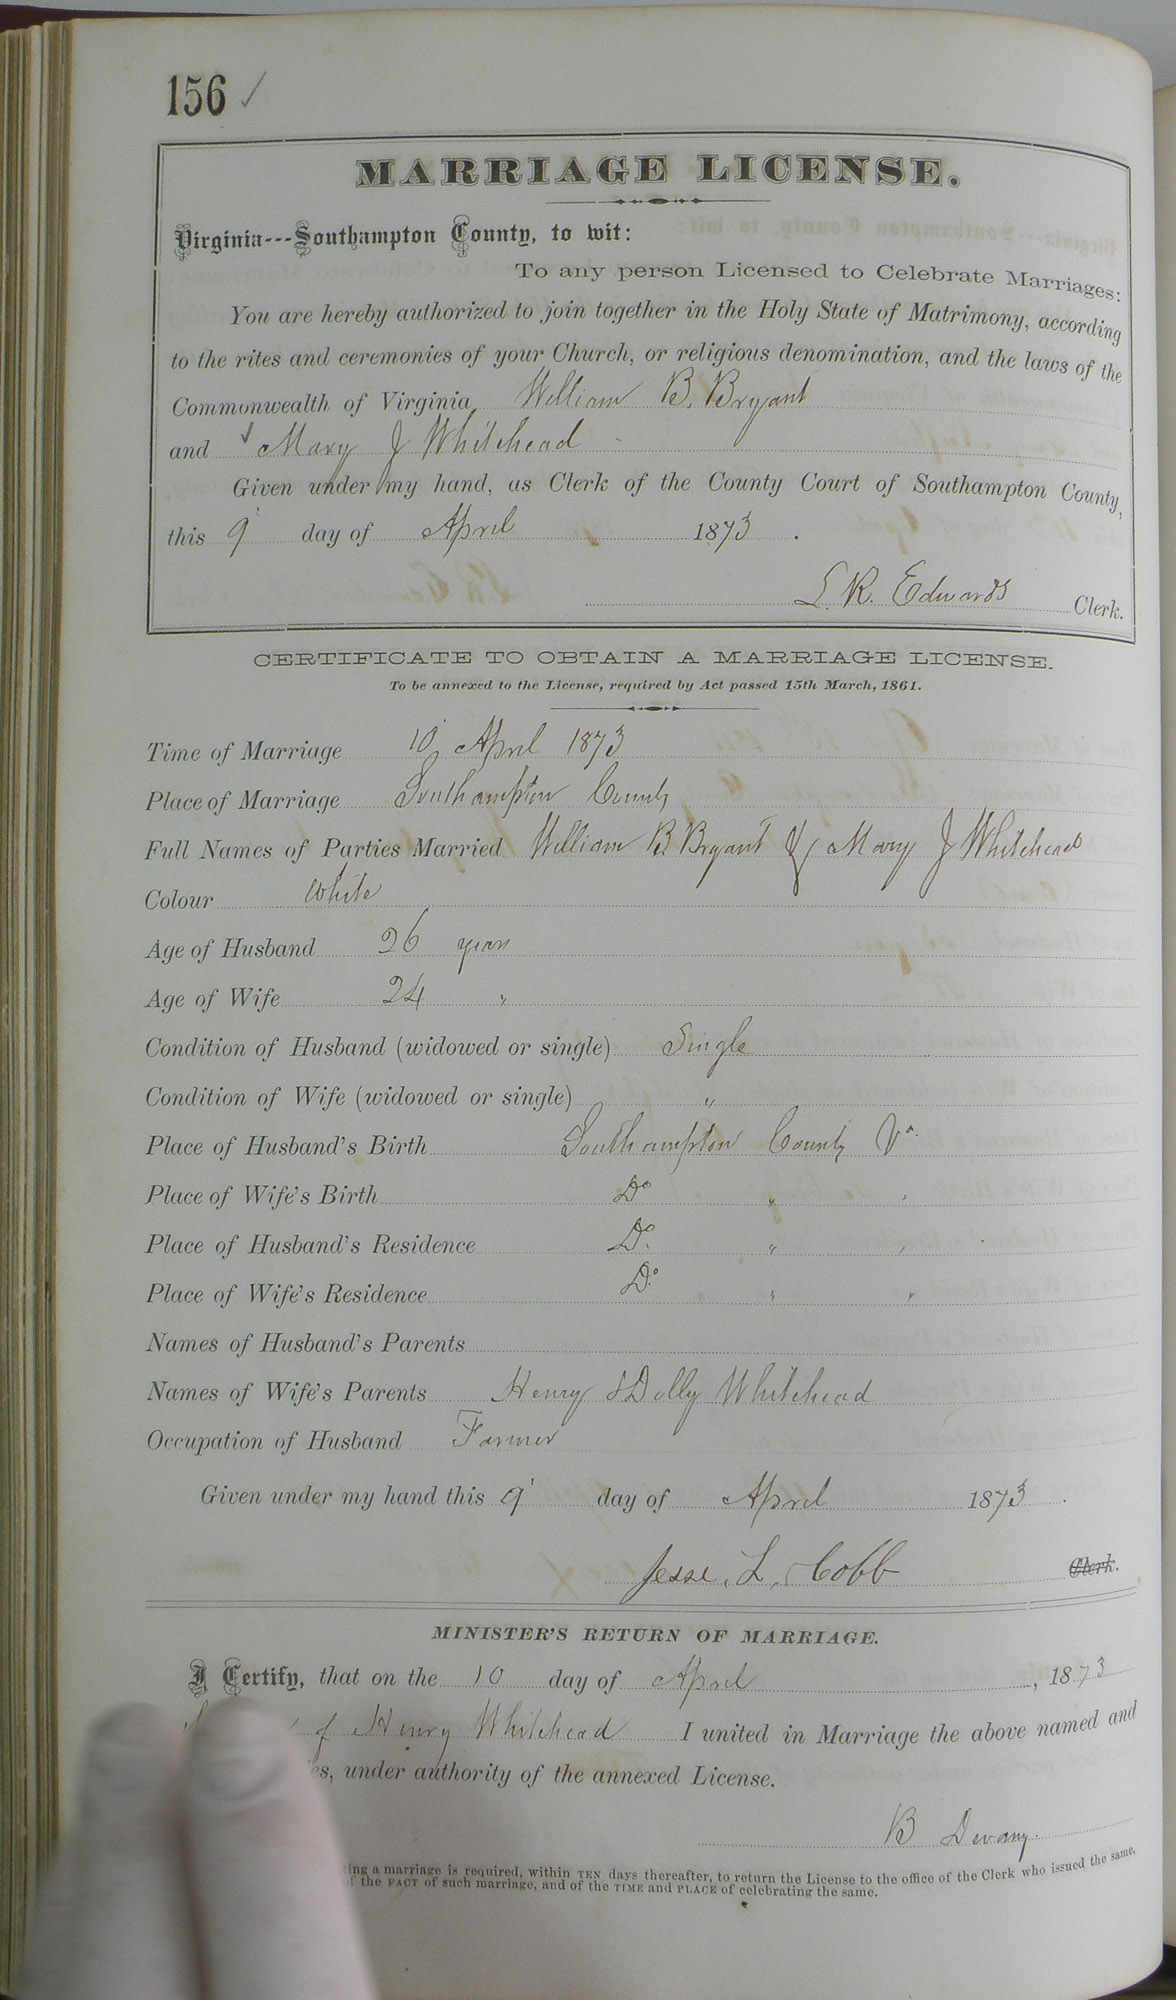 156 ✓
MARRIAGE LICENSE.
Virginia---Southampton County, to wit:
To any person Licensed to Celebrate Marriages:
You are hereby authorized to join together in the Holy State of Matrimony, according
to the rites and ceremonies of your Church, or religious denomination, and the laws of the
Commonwealth of Virginia, William B. Bryant
and ✓ Mary J Whitehead
Given under my hand, as Clerk of the County Court of Southampton County,
this 9 day of April 1873.
L. R. Edwards Clerk.
CERTIFICATE TO OBTAIN A MARRIAGE LICENSE.
To be annexed to the License, required by Act passed 15th March, 1861.
Time of Marriage 10 April 1873
Place of Marriage Southampton County
Full Names of Parties Married William B. Bryant & Mary J Whitehead
Colour White
Age of Husband 26 years
Age of Wife 24 "
Condition of Husband (widowed or single) Single
Condition of Wife (widowed or single) "
Place of Husband's Birth Southampton County Va.
Place of Wife's Birth Do " "
Place of Husband's Residence Do. " "
Place of Wife's Residence Do " "
Names of Husband's Parents
Names of Wife's Parents Henry & Dolly Whitehead
Occupation of Husband Farmer
Given under my hand this 9 day of April 1873.
Jesse. L. Cobb Clerk.
MINISTER'S RETURN OF MARRIAGE.
I Certify, that on the 10 day of April, 1873
of Henry Whitehead I united in Marriage the above named and
under authority of the annexed License.
B Devany
a marriage is required, within TEN days thereafter, to return the License to the office of the Clerk who issued the same,
the FACT of such marriage, and of the TIME and PLACE of celebrating the same.